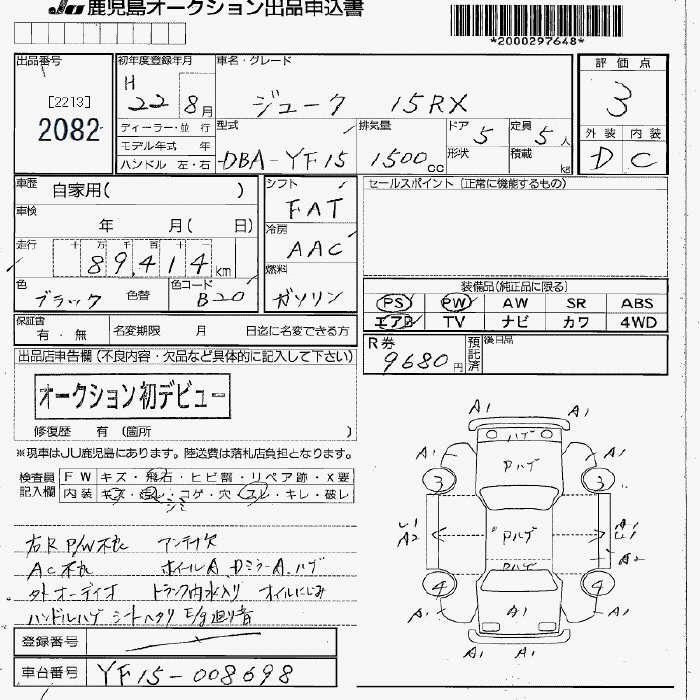 JU 鹿児島オークション出品申込書
*2000297648*
出品番号
[2213]
2082
初年度登録年月
H 22 8月
車名・グレード
ジューク 15RX
評価点
3
外装 内装
D C
ディーラー・並行
モデル年式 年
ハンドル 左・右
型式
DBA-YF15
排気量
1500cc
ドア
5
形状
定員
5人
積載
kg
車歴
自家用( )
車検
年 月( 日)
走行
十 万 千 百 十
89,414km
色
ブラック
色替
色コード
B20
シフト
FAT
冷房
AAC
燃料
ガソリン
セールスポイント(正常に機能するもの)
装備品(純正品に限る)
PS PW AW SR ABS
エアB TV ナビ カワ 4WD
保証書
有・無
名変期限 月 日迄に名変できる方
R券
9680円
預託済
後日品
出品店申告欄(不良内容・欠品など具体的に記入して下さい)
オークション初デビュー
修復歴 有(箇所 )
※現車はJU鹿児島にあります。陸送費は落札店負担となります。
検査員記入欄
FW キズ・飛石・ヒビ割・リペア跡・X要
内装 キズ・汚レ・コゲ・穴・スレ・キレ・破レ
シミ
右R P/W不良 アンテナ欠
AC不良 ホイールA、DミラーA、ハゲ
外オーディオ トランク内水入り オイルにじみ
ハンドルハゲ シートヘタリ E/g廻り音
登録番号
車台番号
YF15-008698
A1 A1
ハゲ
A1 A1
Pハゲ
3 3
U1 A2
Pハゲ
A1
U1
A2
Pハゲ
4 4
A1 A1 A1
A1 A1